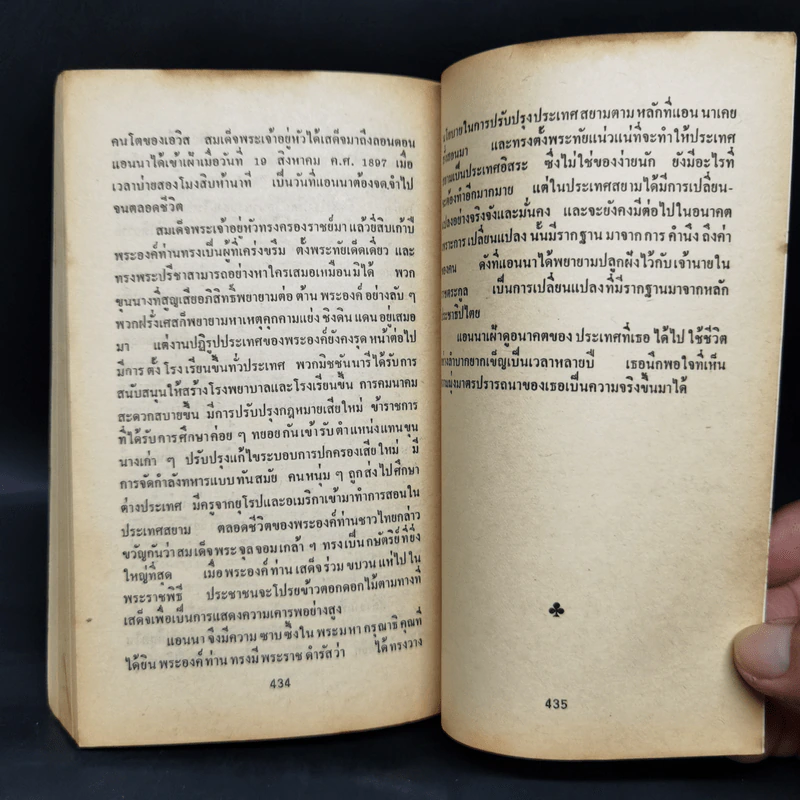 คนโตของเอวิส สมเด็จพระเจ้าอยู่หัวได้เสด็จมาถึงลอนดอน
แอนนาได้เข้าเฝ้าเมื่อวันที่ 19 สิงหาคม ค.ศ. 1897 เมื่อ
เวลาบ่ายสองโมงสิบห้านาที เป็นวันที่แอนนาต้องจดจำไป
จนตลอดชีวิต
สมเด็จพระเจ้าอยู่หัวทรงครองราชย์มาแล้วยี่สิบเก้าปี
พระองค์ท่านทรงเป็นผู้ที่เคร่งขรึม ตั้งพระทัยเด็ดเดี่ยว และ
ทรงพระปรีชาสามารถอย่างหาใครเสมอเหมือนมิได้ พวก
ขุนนางที่สูญเสียอภิสิทธิ์พยายามต่อต้าน พระองค์อย่างลับ ๆ
พวกฝรั่งเศสก็พยายามหาเหตุคุกคามแย่ง ชิงดินแดนอยู่เสมอ
มา แต่งานปฏิรูปประเทศของพระองค์ยังคงรุดหน้าต่อไป
มีการตั้งโรงเรียนขึ้นทั่วประเทศ พวกมิชชันนารีได้รับการ
สนับสนุนให้สร้างโรงพยาบาลและโรงเรียนขึ้น การคมนาคม
สะดวกสบายขึ้น มีการปรับปรุงกฎหมายเสียใหม่ ข้าราชการ
ที่ได้รับการศึกษาค่อย ๆ ทยอยกันเข้ารับตำแหน่งแทนขุน
นางเก่า ๆ ปรับปรุงแก้ไขระบอบการปกครองเสียใหม่ มี
การจัดกำลังทหารแบบทันสมัย คนหนุ่ม ๆ ถูกส่งไปศึกษา
ต่างประเทศ มีครูจากยุโรปและอเมริกาเข้ามาทำการสอนใน
ประเทศสยาม ตลอดชีวิตของพระองค์ท่านชาวไทยกล่าว
ขวัญกันว่าสมเด็จพระจุลจอมเกล้า ฯ ทรงเป็นกษัตริย์ที่ยิ่ง
ใหญ่ที่สุด เมื่อพระองค์ท่านเสด็จร่วมขบวนแห่ไปใน
พระราชพิธี ประชาชนจะโปรยข้าวตอกดอกไม้ตามทางที่
เสด็จเพื่อเป็นการแสดงความเคารพอย่างสูง
แอนนาจึงมีความซาบซึ้งใน พระมหากรุณาธิคุณที่
ได้ยินพระองค์ท่านทรงมีพระราชดำรัสว่า ได้ทรงวาง
434
นโยบายในการปรับปรุงประเทศสยามตามหลักที่แอนนาเคย
สอนมา และทรงตั้งพระทัยแน่วแน่ที่จะทำให้ประเทศ
เป็นประเทศอิสระ ซึ่งไม่ใช่ของง่ายนัก ยังมีอะไรที่
ต้องทำอีกมากมาย แต่ในประเทศสยามได้มีการเปลี่ยน-
แปลงอย่างจริงจังและมั่นคง และจะยังคงมีต่อไปในอนาคต
เพราะการเปลี่ยนแปลงนั้นมีรากฐานมาจากการคำนึงถึงค่า
ของคน ดังที่แอนนาได้พยายามปลูกฝังไว้กับเจ้านายใน
ราชตระกูล เป็นการเปลี่ยนแปลงที่มีรากฐานมาจากหลัก
ประชาธิปไตย
แอนนาเฝ้าดูอนาคตของประเทศที่เธอได้ไปใช้ชีวิต
อย่างลำบากยากเข็ญเป็นเวลาหลายปี เธอนึกพอใจที่เห็น
ความมุ่งมาตรปรารถนาของเธอเป็นความจริงขึ้นมาได้
♣
435